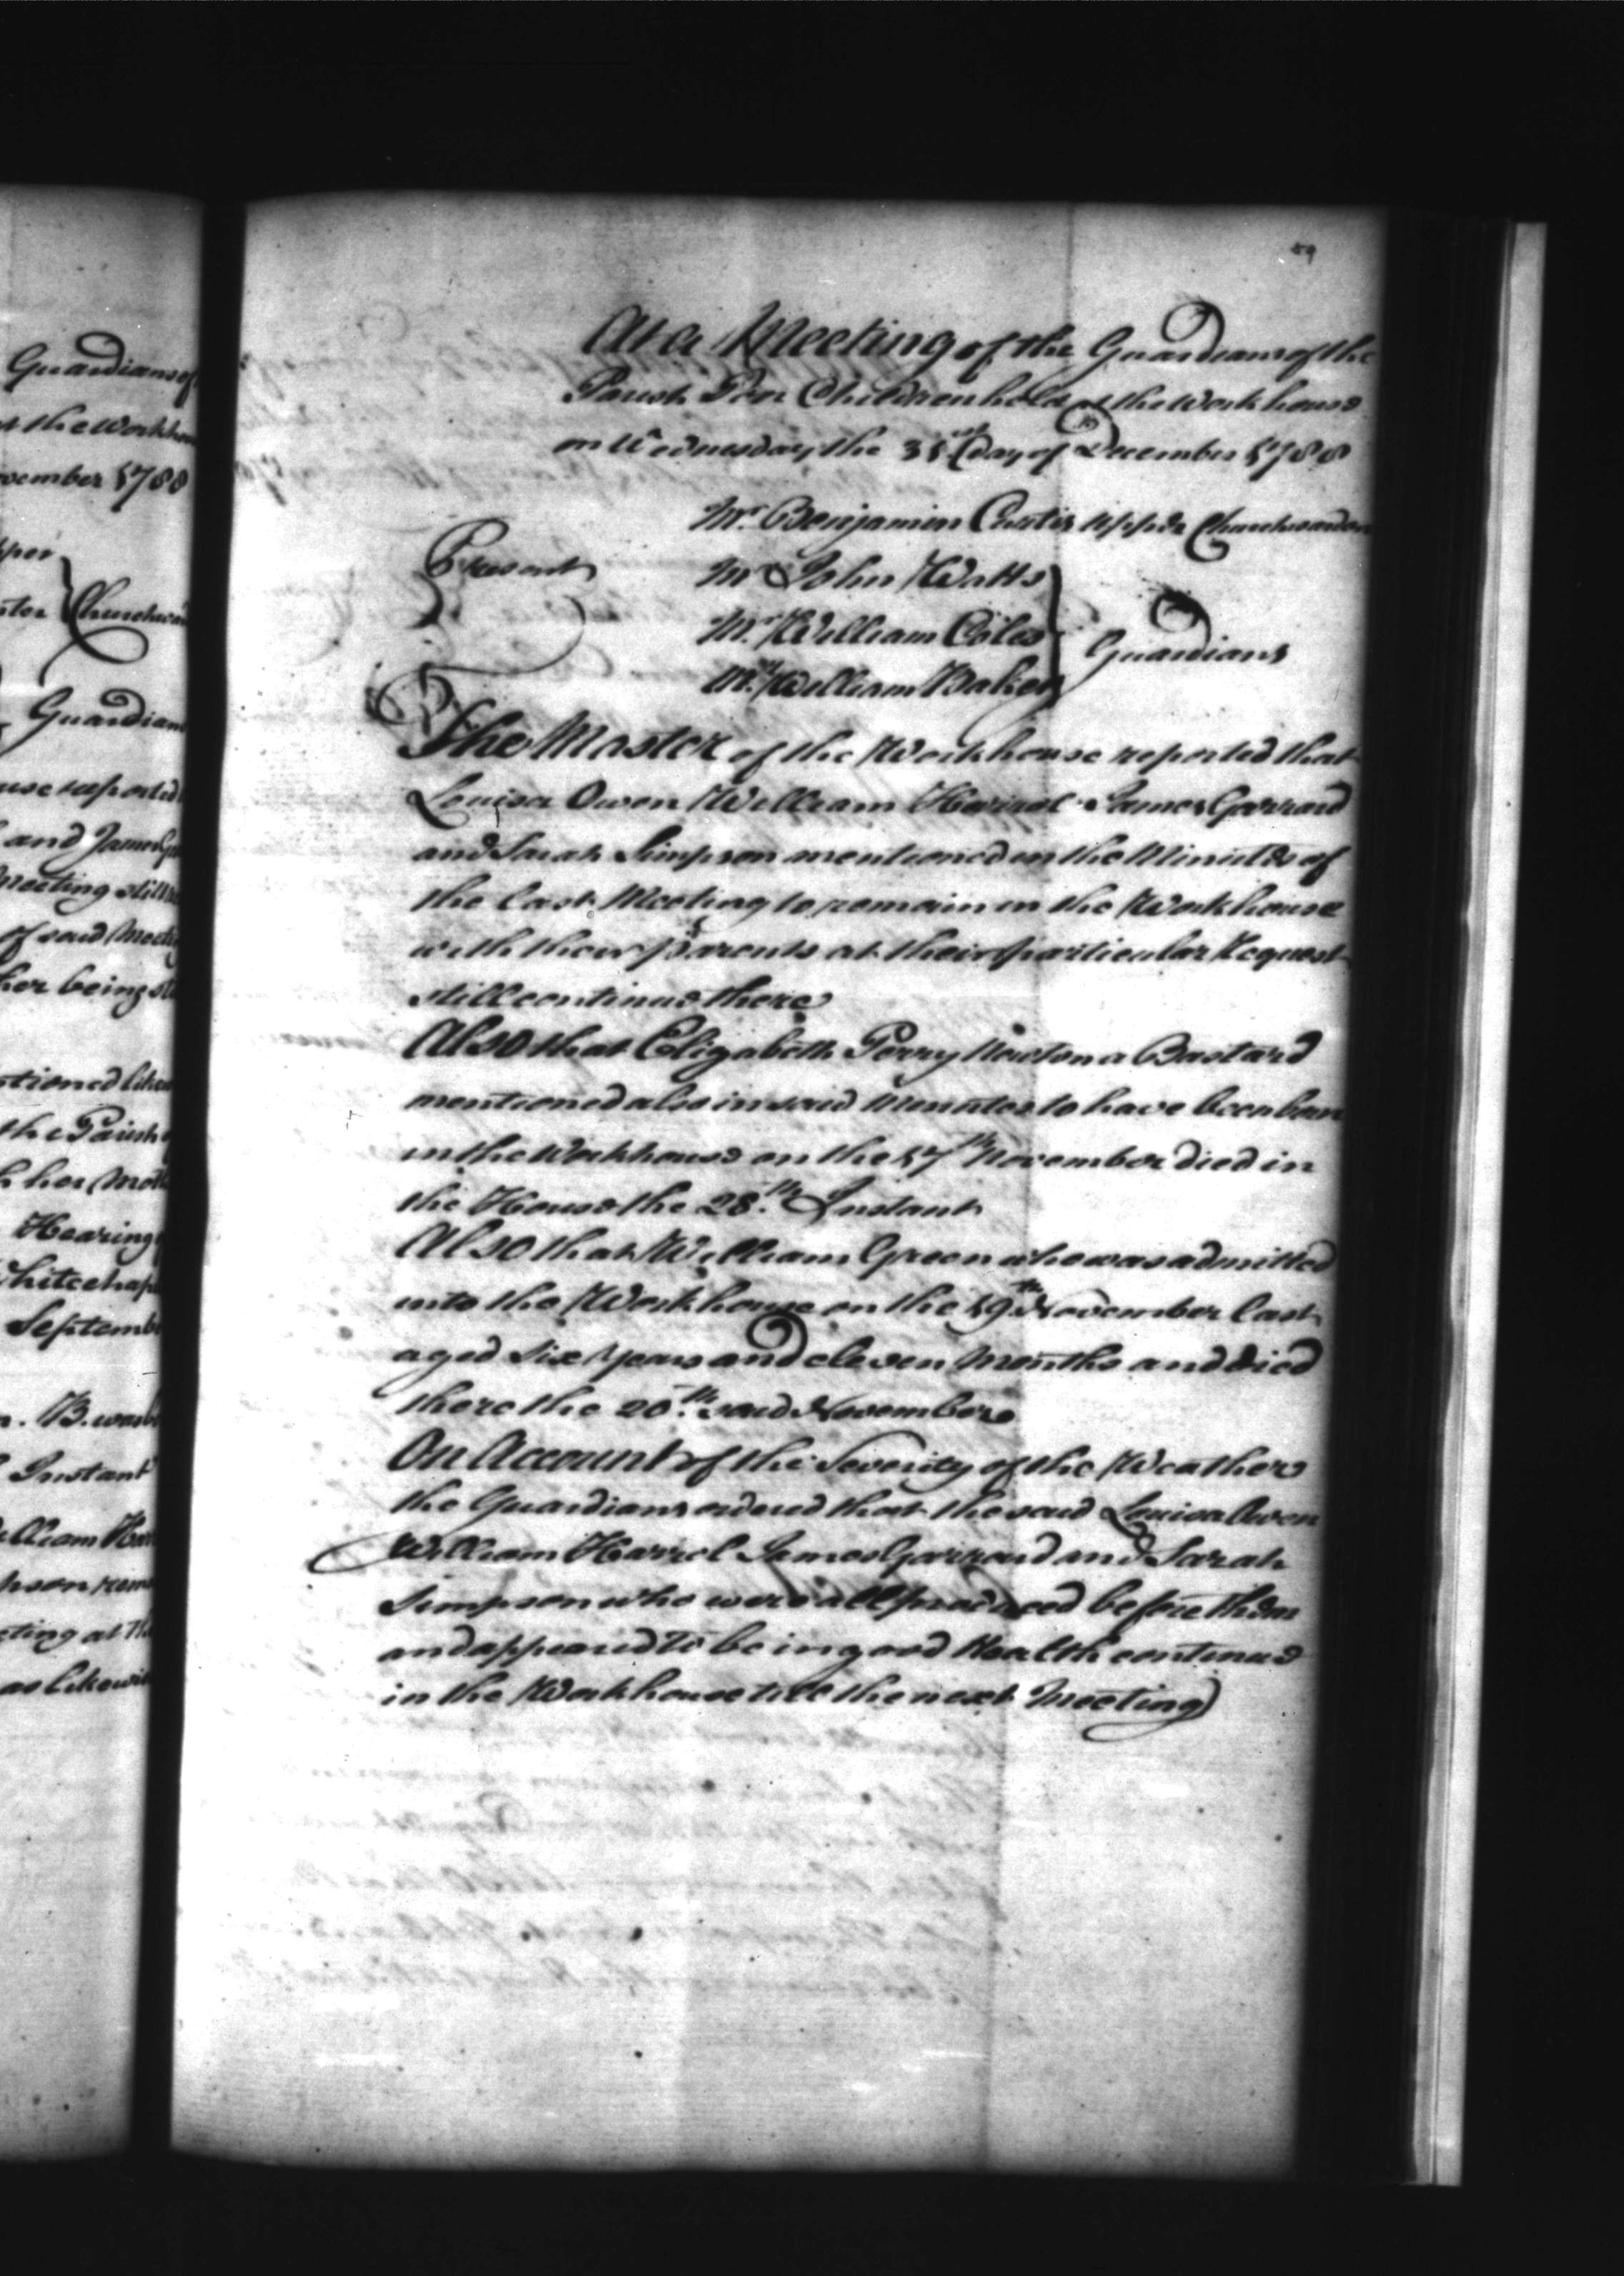 Guardians of
at the Workhou
vember 1788
pper
ster Churchwar
Guardians
use reported
and James Ga
Meeting still
of said Meeti
her being
tioned likew
the Parish
h her Moth
Hearing
Whitechap
Septemb
B. was b
Instant
William Har
pson rem
ting at
as likewis
59
At a Meeting of the Guardians of the
Parish Poor Children held at the Workhouse
on Wednesday the 31st day of December 1788
Mr. Benjamin Curtis Upper Churchwarden
Present Mr John Watts
Mr. William Coles Guardians
Mr. William Baker
The Master of the Workhouse reported that
Louisa Owen William Harrol James Garraud
and Sarah Simpson mentioned in the Minutes of
the last Meeting to remain in the Workhouse
with their parents at their particular Request
still continue there
Also that Elizabeth Perry Newton a Bastard
mentioned also in said Minutes to have been born
in the Workhouse on the 17th November died in
the House the 28th. Instant
Also that William Green who was admitted
into the Workhouse on the 19th November last
aged Six Years and eleven Months and died
there the 20th. said November
On Account of the Severity of the Weather
the Guardians ordered that the said Louisa Owen
William Harrol James Garraud and Sarah
Simpson who were all produced before them
and appeared to be in good Health continue
in the Workhouse till the next Meeting